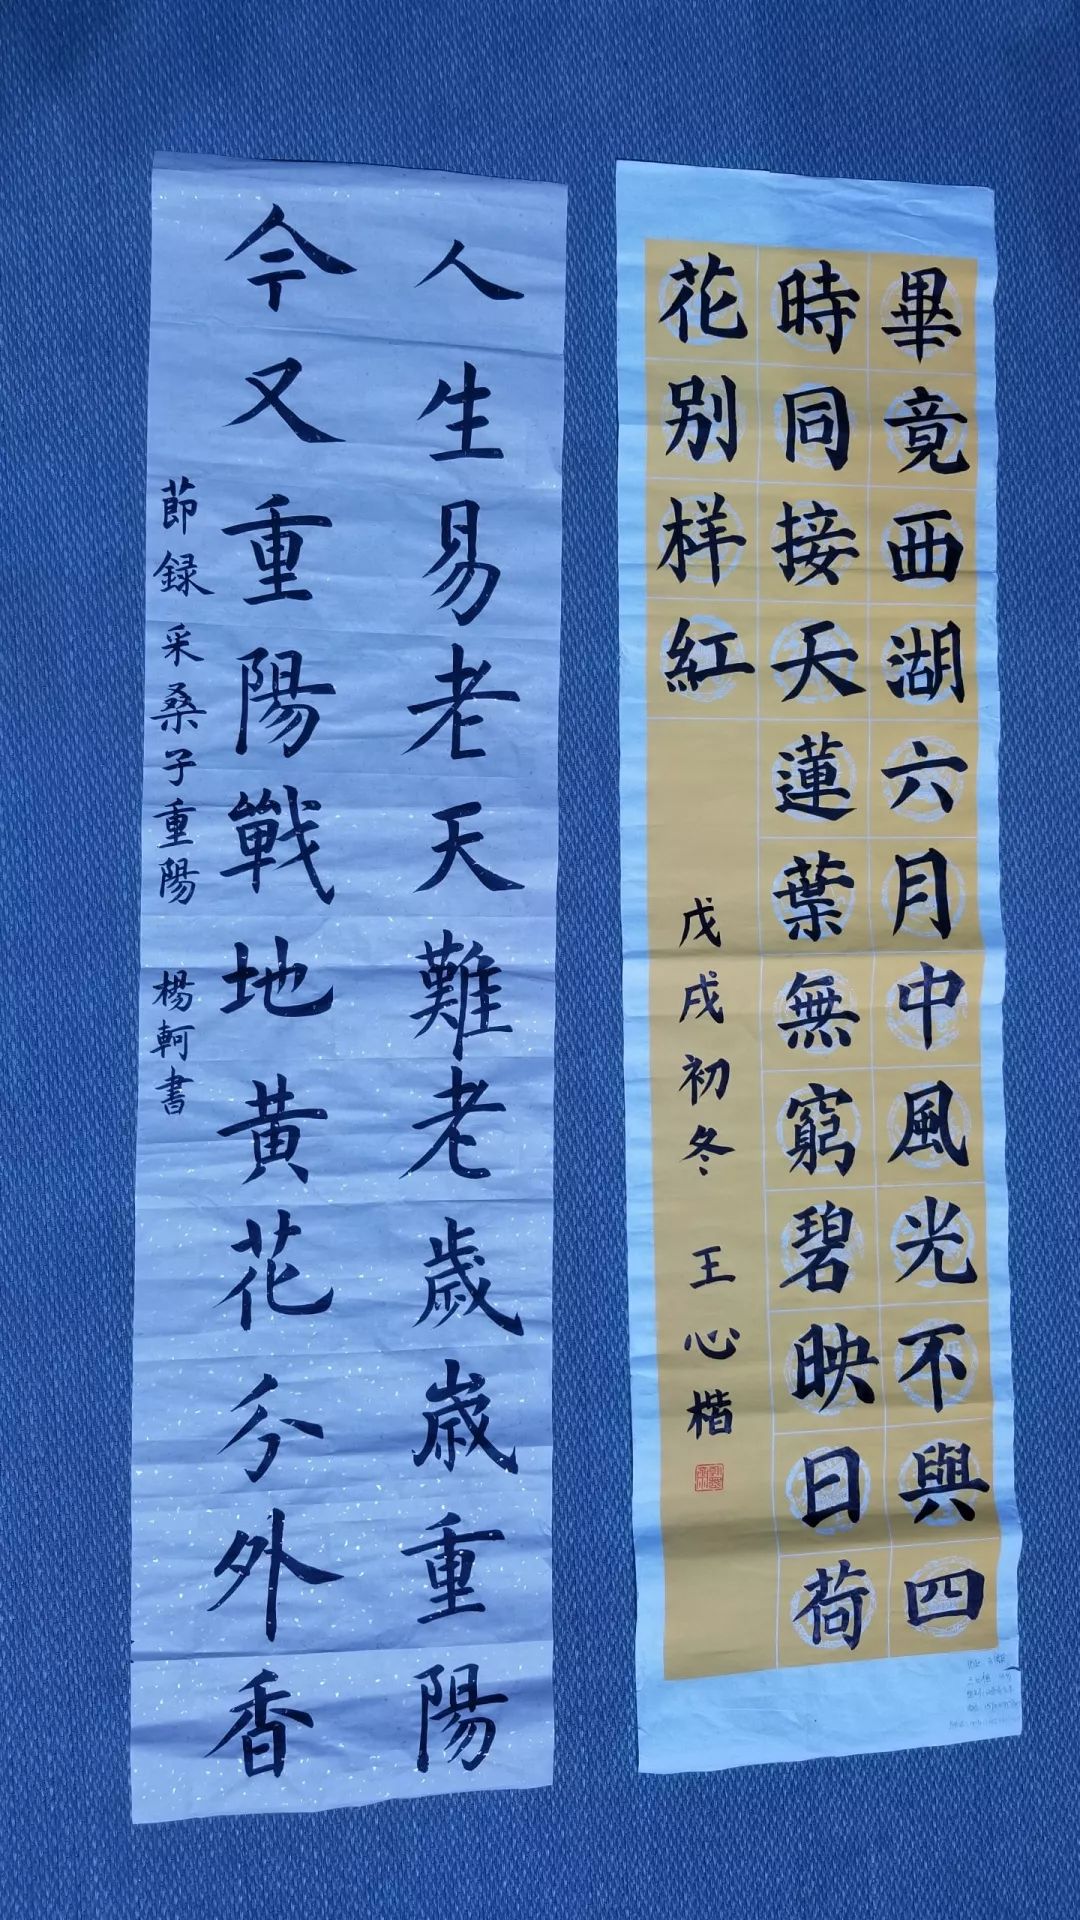 畢竟西湖六月中風光不與四
時同接天蓮葉無窮碧映日荷
花别样紅
戊戌初冬 王心楷
人生易老天難老歲歲重陽
今又重陽戰地黃花分外香
節録采桑子重陽 楊軻書